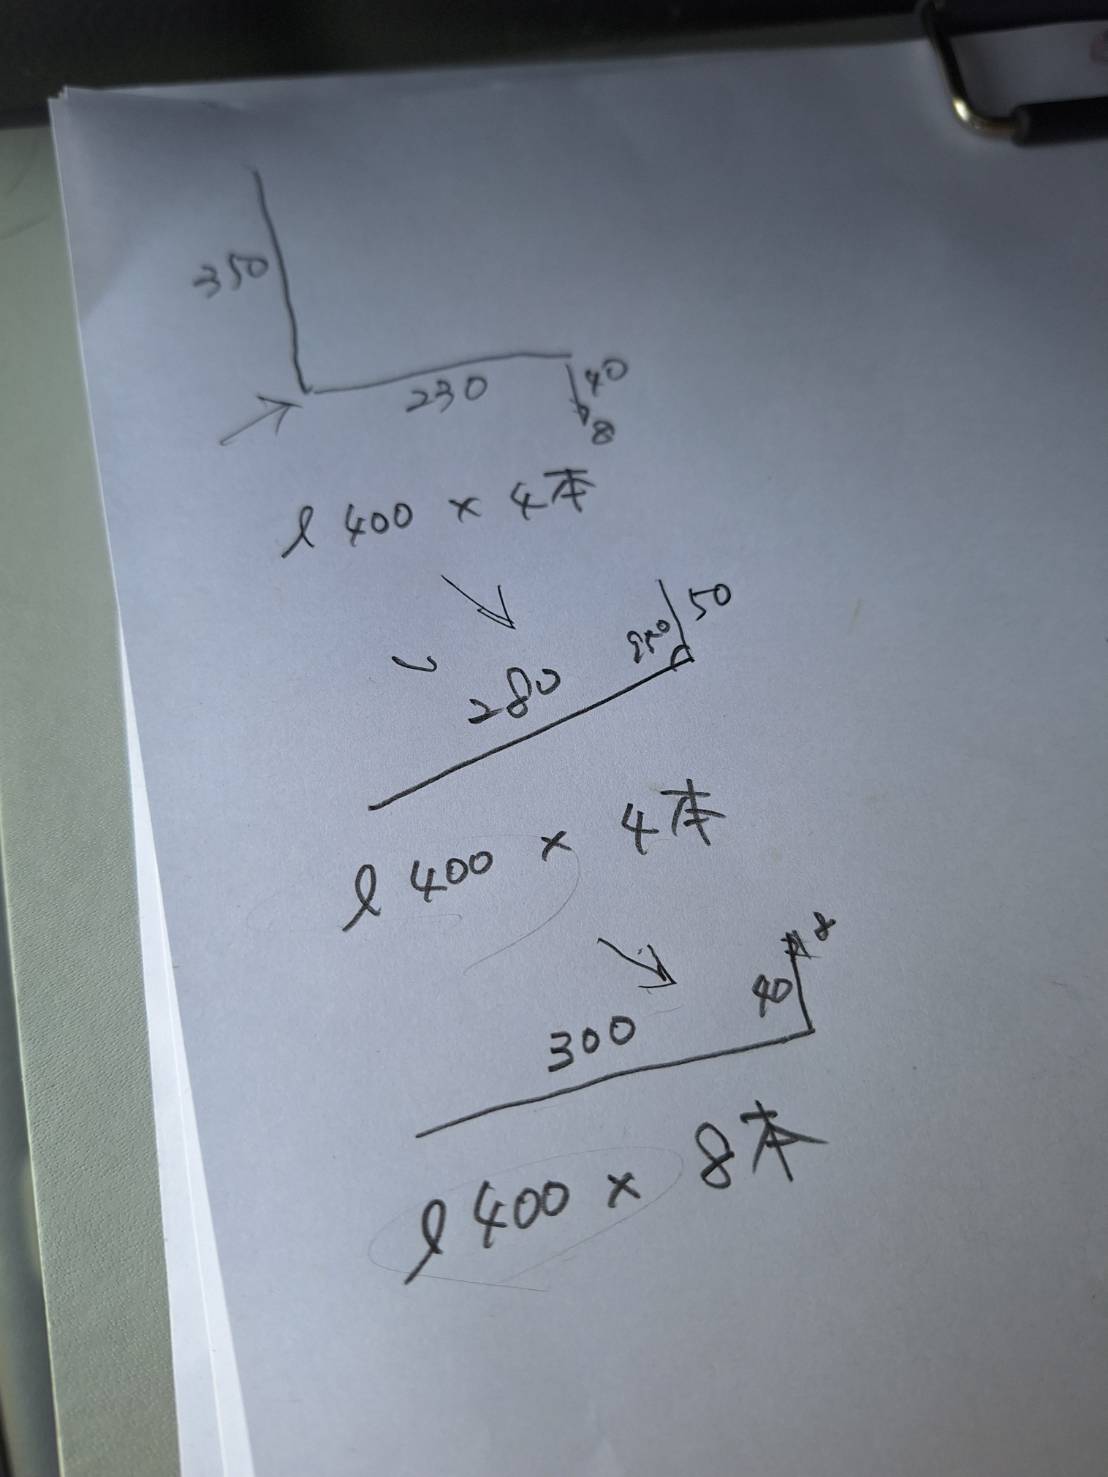 350
230
40
8
l 400 × 4本
50
280
l 400 × 4本
8
40
300
l 400 × 8本